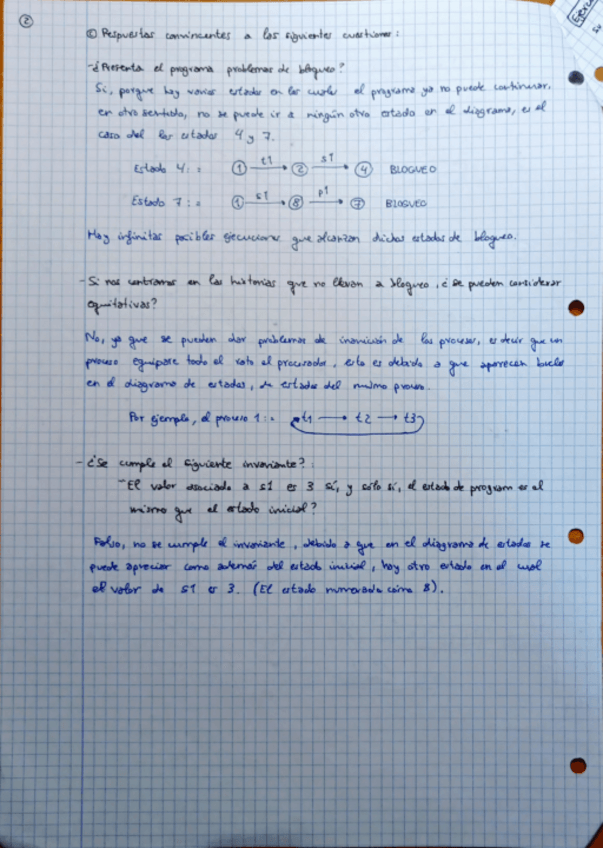 2
© Respuestas convincentes a las siguientes cuestiones:
-¿Presenta el programa problemas de bloqueo?
Si, porque hay varios estados en los cuales el programa ya no puede continuar,
en otro sentido, no se puede ir a ningún otro estado en el diagrama, es el
caso del los estados 4 y 7.
Estado 4: 1 t1 2 s1 4 BLOQUEO
Estado 7: 1 s1 8 p1 7 BLOQUEO
Hay infinitas posibles ejecuciones que alcanzan dichos estados de bloqueo.
- Si nos centramos en las historias que no llevan a bloqueo, ¿se pueden considerar
equitativas?
No, ya que se pueden dar problemas de inanición de los procesos, es decir que un
proceso equipare todo el rato el procesador, esto es debido a que aparecen bucles
en el diagrama de estados, de estados del mismo proceso.
Por ejemplo, el proceso 1: t1 t2 t3
- ¿Se cumple el siguiente invariante?:
- El valor asociado a s1 es 3 sí, y solo sí, el estado de program es el
mismo que el estado inicial?
Falso, no se cumple el invariante, debido a que en el diagrama de estados se
puede apreciar como además del estado inicial, hay otro estado en el cual
el valor de s1 es 3. (El estado numerado como 8).